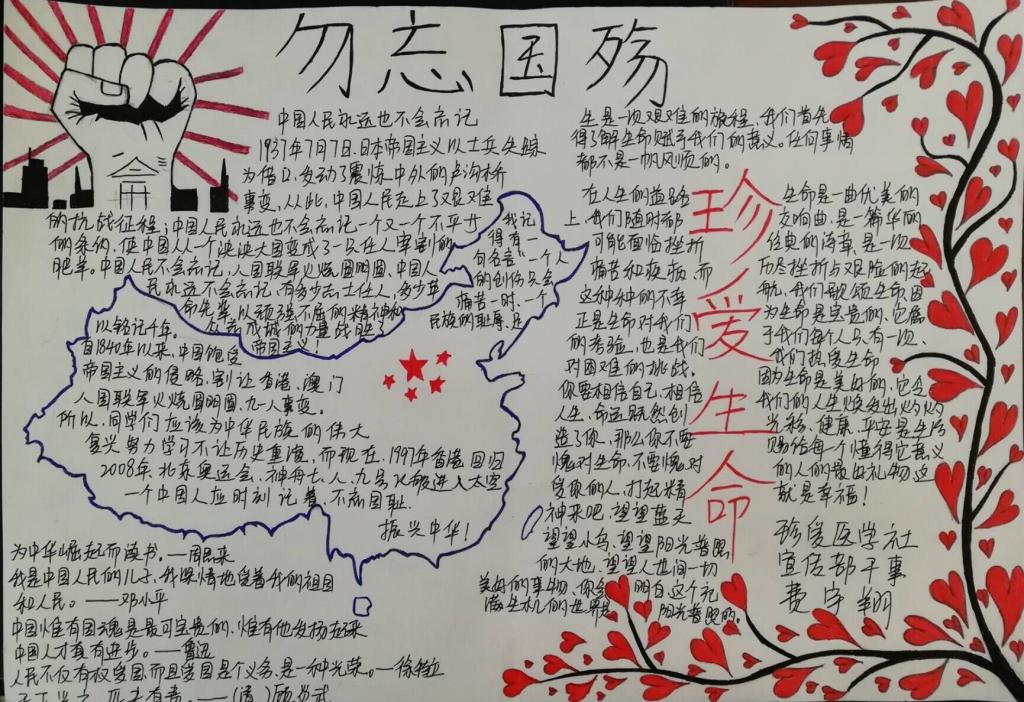 勿忘国殇
中国人民永远也不会忘记
1937年7月7日.日本帝国主义以士兵失踪
为借口.发动了震惊中外的卢沟桥
事变,从此,中国人民走上了艰难
的抗战征程;中国人民永远也不会忘记一个又一个不平廿
的条约,使中国从一个泱泱大国变成了一只任人宰割的
肥羊。中国人民不会忘记,八国联军火烧圆明圆、中国人
民永远不会忘记,有多少志士仁人,多少革
命先辈,以顽强不屈的精神和
众志成城的力量战胜了
帝国主义!
我记
得有一
句名言"一个人
的创伤只会
痛苦一时,一个
民族的耻辱,足
以铭记千年。
自1840年以来,中国饱受
帝国主义的侵略.割让香港,澳门
八国联军火烧圆明圆、九一八事变。
所以,同学们应该为中华民族的伟大
复兴努力学习不让历史重演,而现在,1997年香港回归
2008年,北京奥运会,神舟七、八、九号飞船进入太空
一个中国人应时刻记着,不忘国耻.
振兴中华!
为中华崛起而读书。—周恩来
我是中国人民的儿子,我深情地爱着我的祖国
和人民。——邓小平
中国惟有国魂是最可宝贵的,惟有他发扬起来
中国人才真有进步。——鲁迅
人民不仅有权爱国,而且爱国是个义务,是一种光荣。—徐特立
天下兴亡,匹夫有责。——(清)顾炎武
生是一次艰难的旅程,我们首先
得了解生命赋予我们的意义。任何事情
都不是一帆风顺的。
在人生的道路
上,我们随时都
可能面临挫折
痛苦和疾病,而
这种种的不幸
正是生命对我们
的考验,也是我们
对困难的挑战。
你要相信自己,相信
人生,命运既然创
造了你,那么你不要
愧对生命,不要愧对
爱你的人,打起精
神来吧,望望蓝天
望望小鸟,望望阳光普照
的大地,望望人世间一切
美好的事物,你会
明白,这个充
满生机的世界是
阳光普照的。
珍爱生命
生命是一曲优美的
交响曲,是一篇华的
经典的诗章,是一次
历尽挫折与艰险的起
航,我们歌颂生命,因
为生命是宝贵的,它属
于我们每个人只有一次、
我们热爱生命
因为生命是美好的,它令
我们的人生焕发出灼灼
光彩,健康、平安是生活
赐给每一个懂得它意义
的人的最好礼物,这
就是幸福!
珍爱医学社
宣传部干事
费宇翔